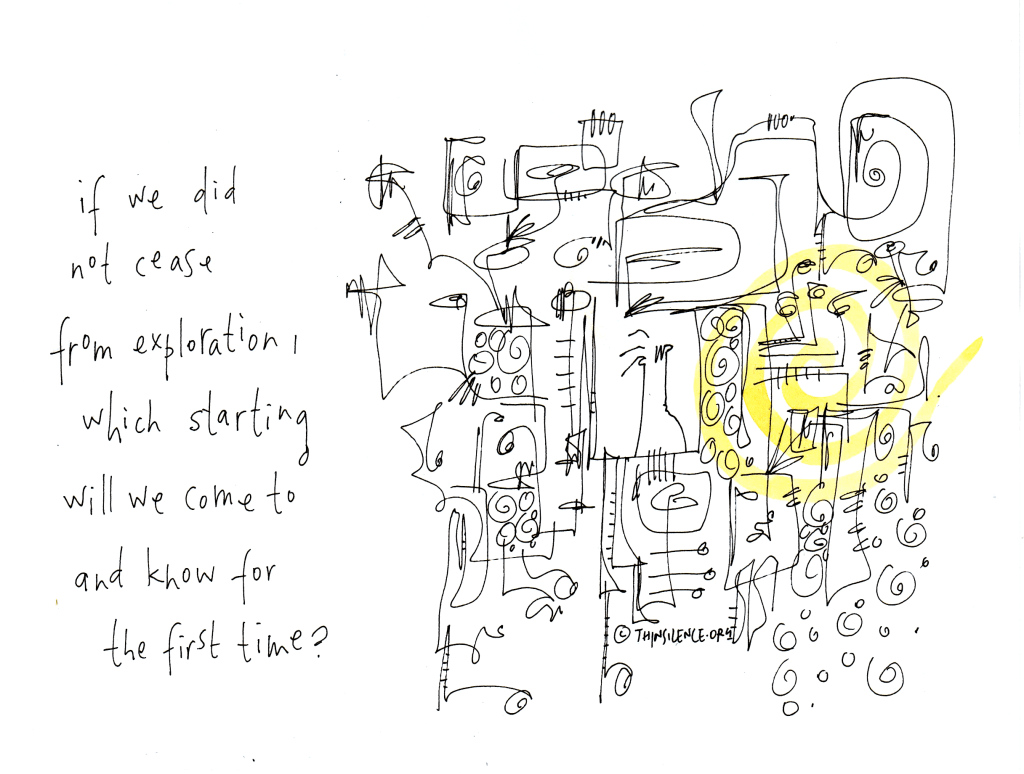 if we did
not cease
from exploration,
which starting
will we come to
and know for
the first time?
© THINSILENCE.ORG